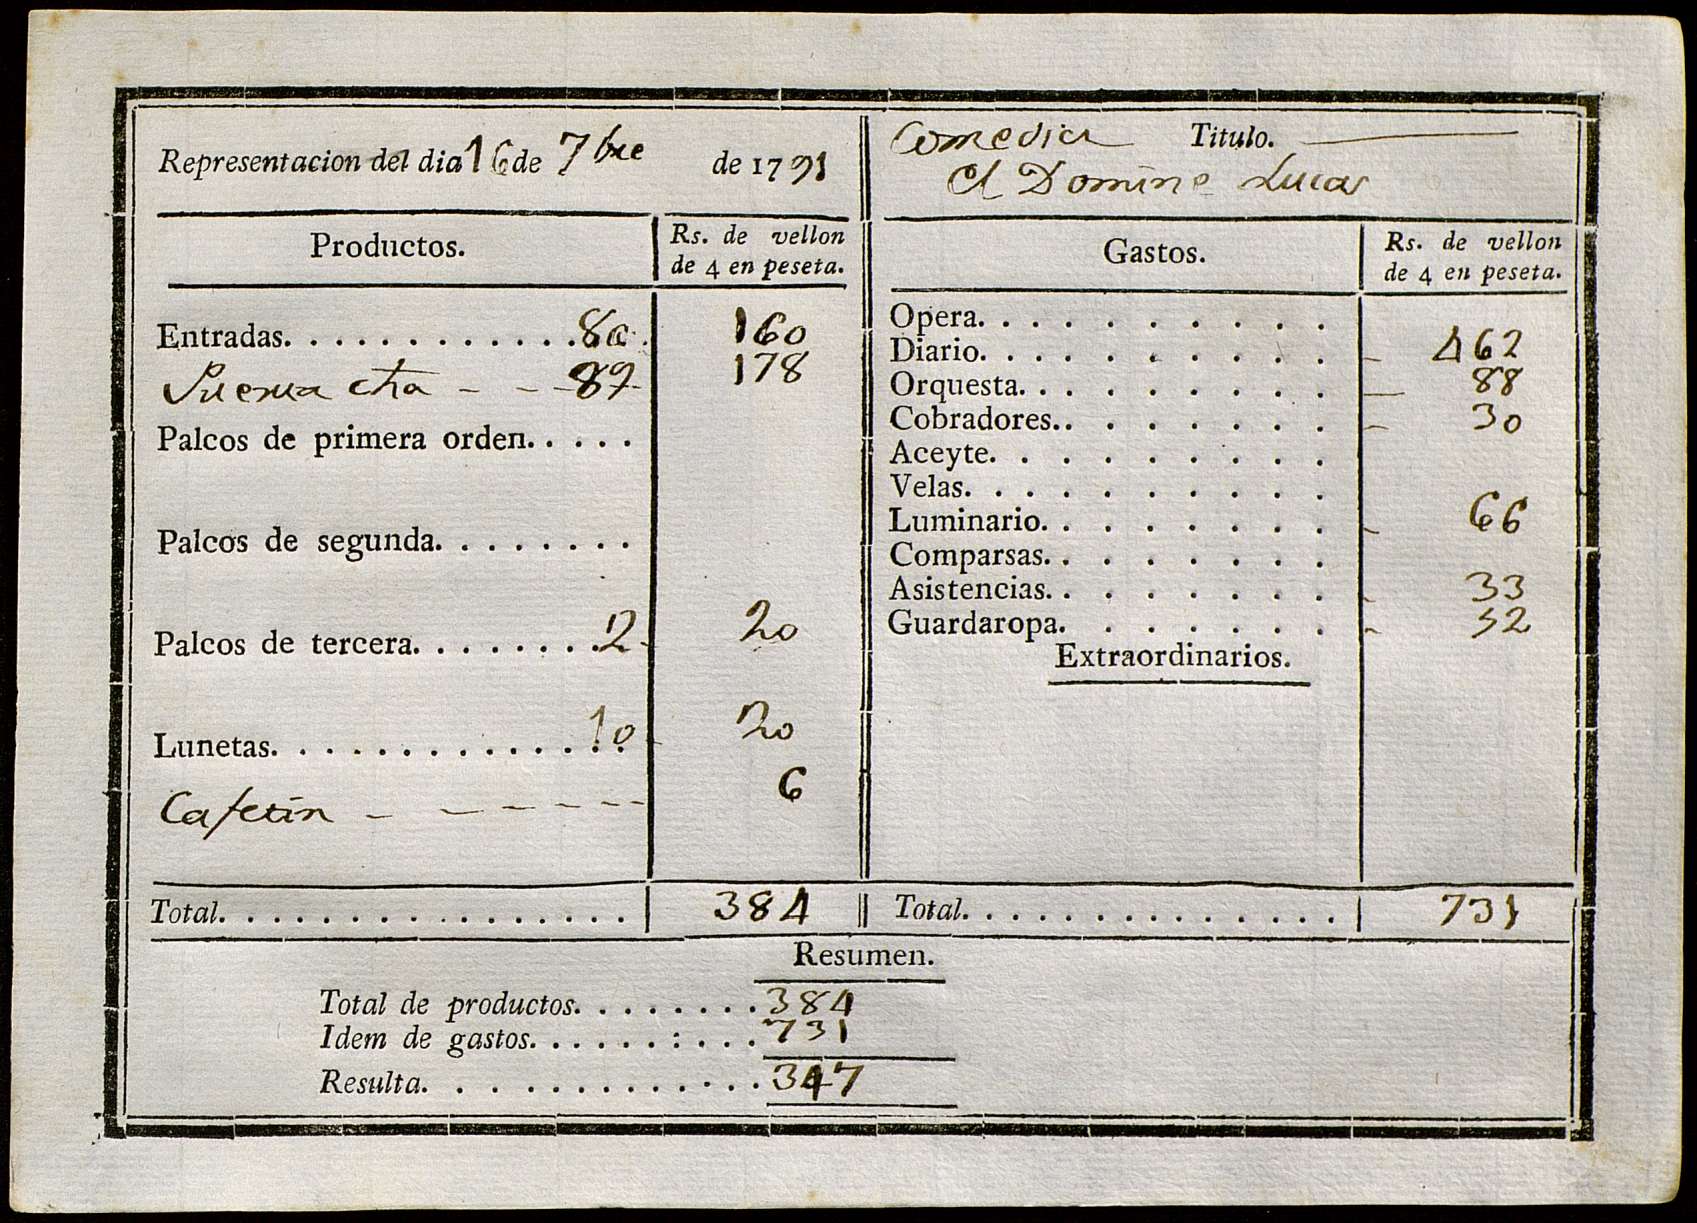 Representacion del dia 16 de 7bre de 1791
Comedia Titulo.
el Domine Lucas
Productos. Rs. de vellon
de 4 en peseta.
Entradas. . . . . . . . . . . . . 80. 160
Puerta cha - - - 89 178
Palcos de primera orden. . . . .
Palcos de segunda. . . . . . . .
Palcos de tercera. . . . . . . . 2 20
Lunetas. . . . . . . . . . . . . . 10 20
Cafetin - - - - - - 6
Total. . . . . . . . . . . . . . . . . 384
Gastos. Rs. de vellon
de 4 en peseta.
Opera. . . . . . . . . .
Diario. . . . . . . . . . - 462
Orquesta. . . . . . . . . - 88
Cobradores. . . . . . . . - 30
Aceyte. . . . . . . . . .
Velas. . . . . . . . . .
Luminario. . . . . . . . - 66
Comparsas. . . . . . . .
Asistencias. . . . . . . . - 33
Guardaropa. . . . . . . - 52
Extraordinarios.
Total. . . . . . . . . . . . . . . 731
Resumen.
Total de productos. . . . . . . . 384
Idem de gastos. . . . . . : . . . 731
Resulta. . . . . . . . . . . . . 347